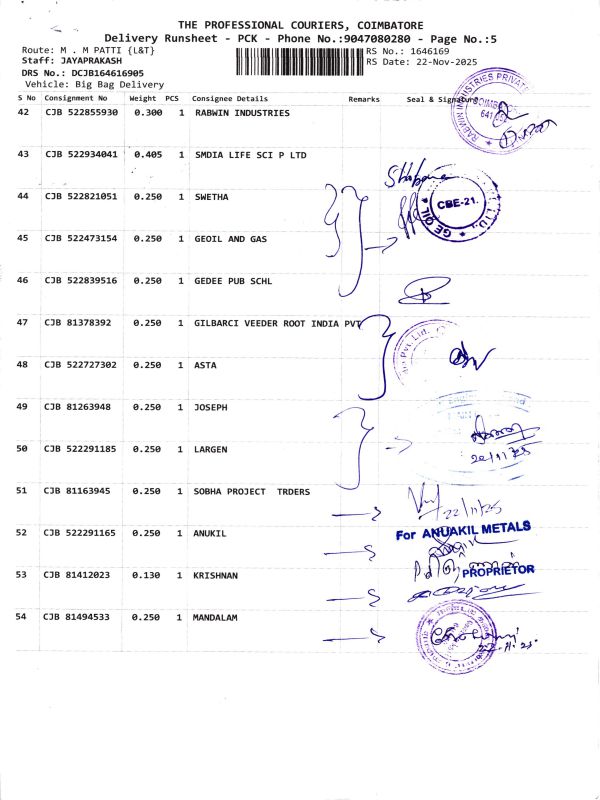 THE PROFESSIONAL COURIERS, COIMBATORE
Delivery Runsheet - PCK - Phone No.:9047080280 - Page No.:5
Route: M . M PATTI {L&T} RS No.: 1646169
Staff: JAYAPRAKASH RS Date: 22-Nov-2025
DRS No.: DCJB164616905
Vehicle: Big Bag Delivery
S No Consignment No Weight PCS Consignee Details Remarks Seal & Signature
42 CJB 522855930 0.300 1 RABWIN INDUSTRIES
RABWIN INDUSTRIES PRIVATE
43 CJB 522934041 0.405 1 SMDIA LIFE SCI P LTD
44 CJB 522821051 0.250 1 SWETHA
CBE-21.
GE OIL
LTD.,
45 CJB 522473154 0.250 1 GEOIL AND GAS
46 CJB 522839516 0.250 1 GEDEE PUB SCHL
47 CJB 81378392 0.250 1 GILBARCI VEEDER ROOT INDIA PVT
Pvt. Ltd.
48 CJB 522727302 0.250 1 ASTA
49 CJB 81263948 0.250 1 JOSEPH
50 CJB 522291185 0.250 1 LARGEN
22/11/25
51 CJB 81163945 0.250 1 SOBHA PROJECT TRDERS
22/11/25
52 CJB 522291165 0.250 1 ANUKIL
For ANUAKIL METALS
53 CJB 81412023 0.130 1 KRISHNAN
PROPRIETOR
54 CJB 81494533 0.250 1 MANDALAM
22.11.25